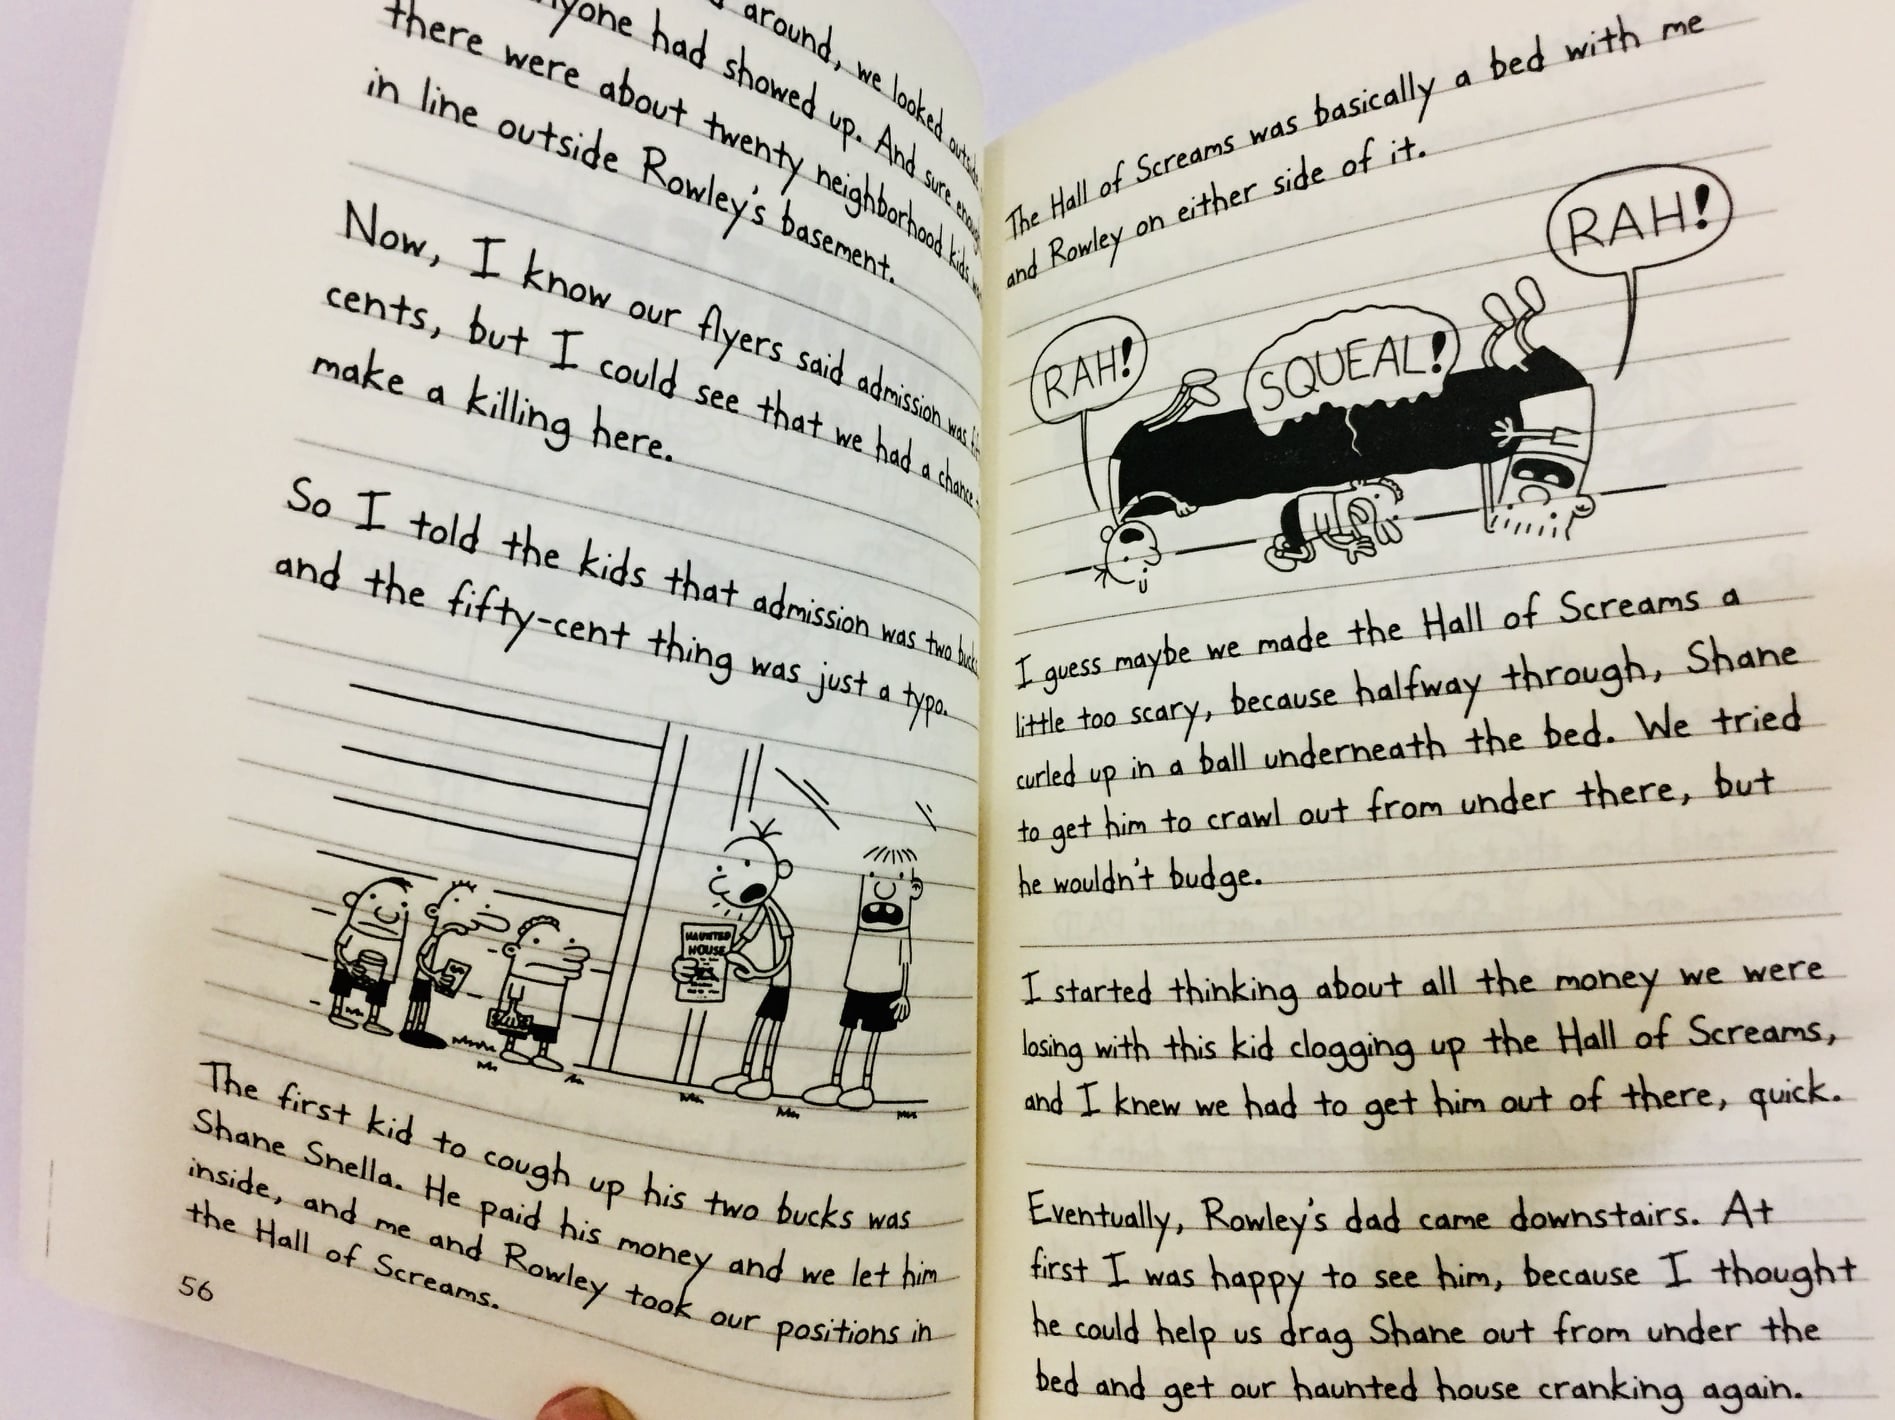 around, we looked outside
anyone had showed up. And sure enough,
there were about twenty neighborhood kids
in line outside Rowley's basement.
Now, I know our flyers said admission was
cents, but I could see that we had a chance
make a killing here.
So I told the kids that admission was two bucks
and the fifty-cent thing was just a typo.
HAUNTED
HOUSE
The first kid to cough up his two bucks was
Shane Snella. He paid his money and we let him
inside, and me and Rowley took our positions in
the Hall of Screams.
56
The Hall of Screams was basically a bed with me
and Rowley on either side of it.
RAH!
SQUEAL!
RAH!
I guess maybe we made the Hall of Screams a
little too scary, because halfway through, Shane
curled up in a ball underneath the bed. We tried
to get him to crawl out from under there, but
he wouldn't budge.
I started thinking about all the money we were
losing with this kid clogging up the Hall of Screams,
and I knew we had to get him out of there, quick.
Eventually, Rowley's dad came downstairs. At
first I was happy to see him, because I thought
he could help us drag Shane out from under the
bed and get our haunted house cranking again.